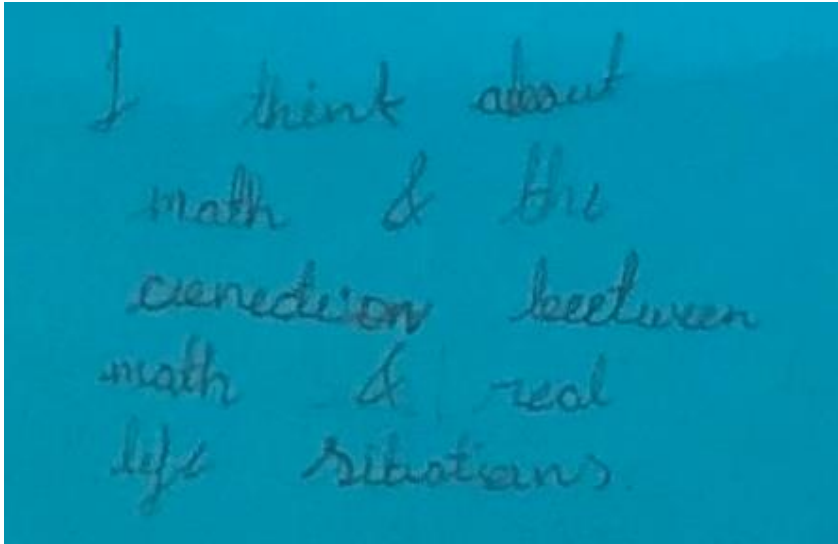 I think about
math & the
conection beetween
math & real
life sitotions